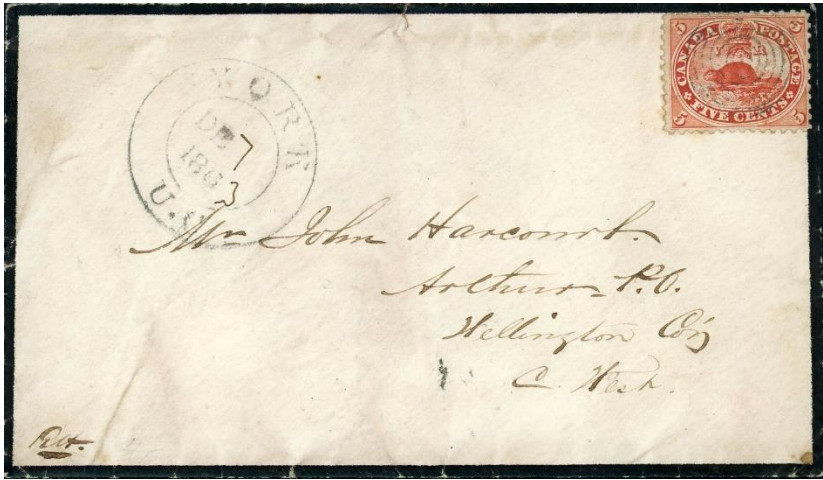 5 CANADA POSTAGE 5
5 FIVE CENTS 5
YORK
DE 7
186
3
U.C.
Mr John Harcourt.
Arthur P.O.
Wellington Co'y
C. West.